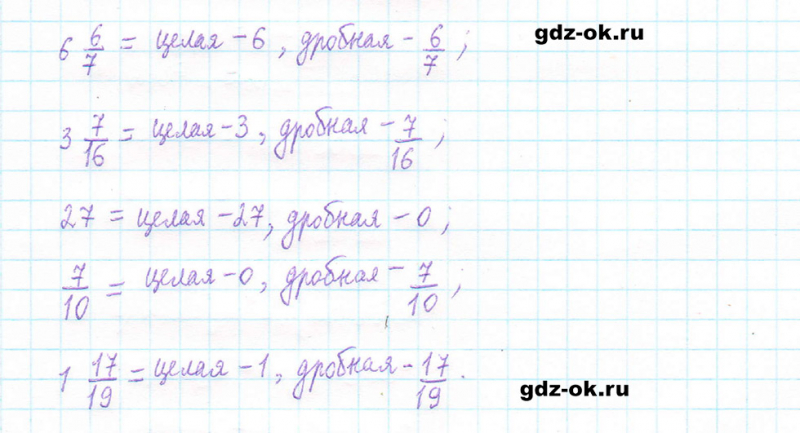 6 6/7 = целая - 6, дробная - 6/7; gdz-ok.ru
3 7/16 = целая - 3, дробная - 7/16;
27 = целая - 27, дробная - 0;
7/10 = целая - 0, дробная - 7/10;
1 17/19 = целая - 1, дробная - 17/19.
gdz-ok.ru